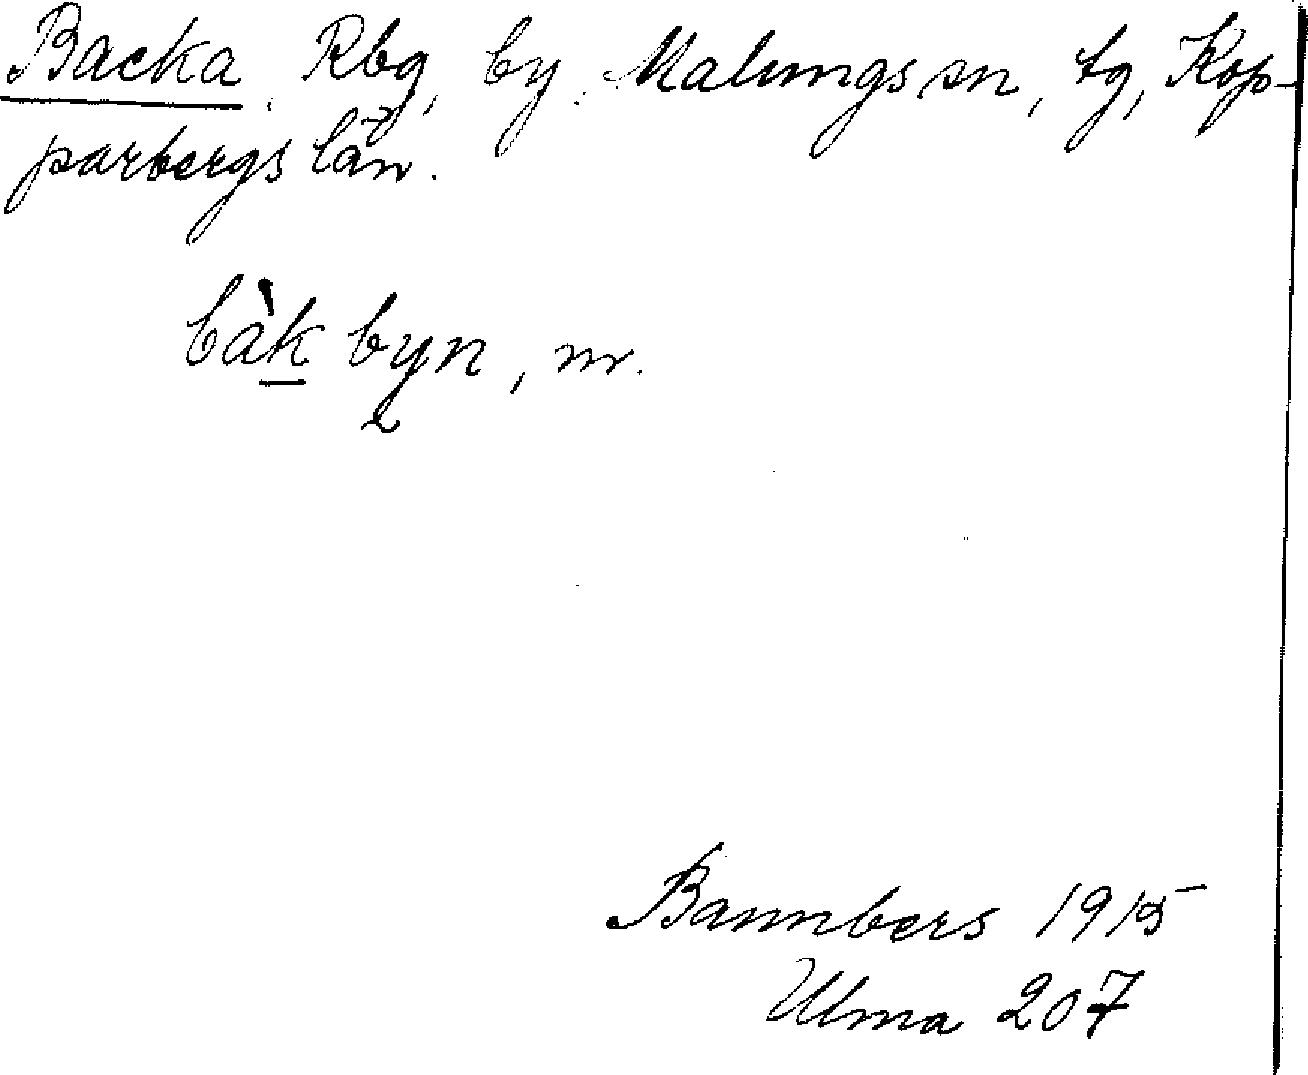 Backa, Rbg, by. Malungs sn, tg, Kop-
parbergs län.
bàk byn, m.
Bannbers 1915
Ulma 207